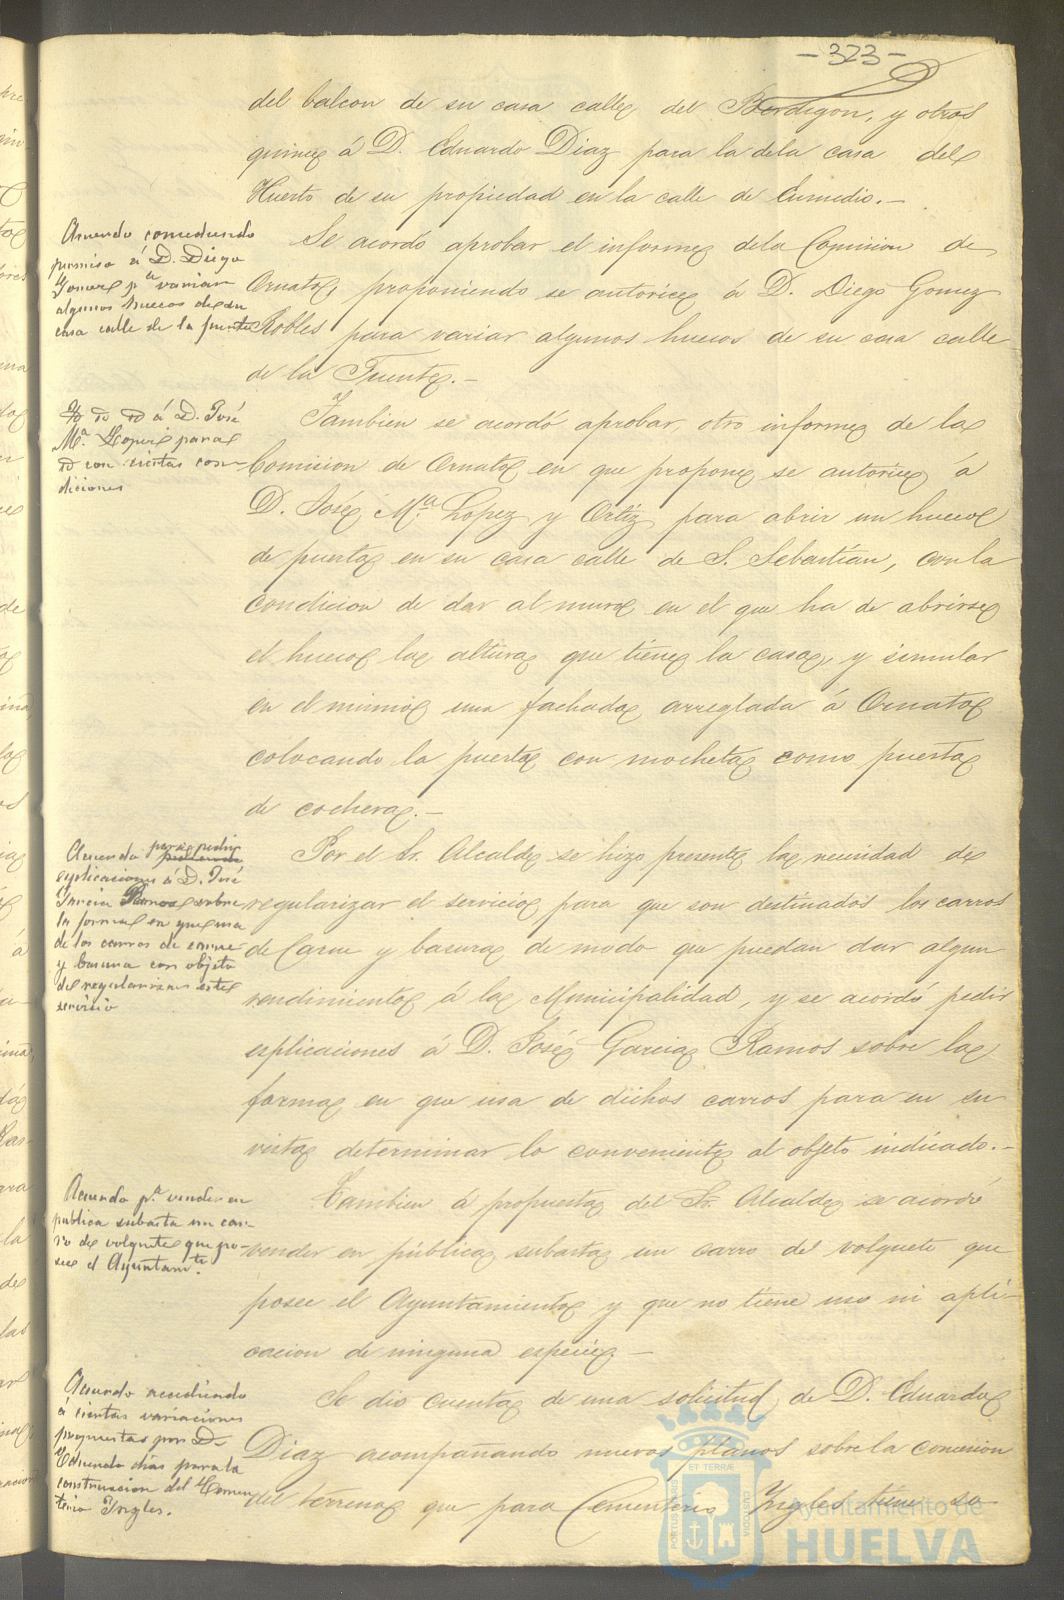 -323-
del balcon de su casa calle del Berdigon, y otros
quince á D. Eduardo Diaz para la dela casa del
Huerto de su propiedad en la calle de Enmedio.-
Acuerdo concediendo
permiso á D. Diego
Gomez pª variar
algunos huecos de su
casa calle de la fuente
Se acordó aprobar el informe dela Comision de
Ornato, proponiendo se autorice á D. Diego Gomez
Robles para variar algunos huecos de su casa calle
de la Fuente.-
Yd Yd Yd á D. José
Mª Lopez para
Yd con ciertas con-
diciones
Tambien se acordó aprobar otro informe de la
Comision de Ornato en que propone se autorice á
D. José Mª Lopez y Ortiz para abrir un hueco
de puerta en su casa calle de S. Sebastian, con la
condicion de dar al muro en el que ha de abrirse
el hueco la altura que tiene la casa, y simular
en el mismo una fachada arreglada á Ornato
colocando la puerta con mocheta como puerta
de cochera.-
Acuerdo para pedir
esplicaciones á D. José
Garcia Ramos sobre
la forma en que usa
de los carros de carne
y basura con objeto
de regularizar este
servicio
Por el Sr. Alcalde se hizo presente la necesidad de
regularizar el servicio para que son destinados los carros
de Carne y basura de modo que puedan dar algun
rendimiento á la Municipalidad, y se acordó pedir
esplicaciones á D. José Garcia Ramos sobre la
forma en que usa de dichos carros para en su
vista determinar lo conveniente al objeto indicado.-
Acuerdo pª vender en
publica subasta un car-
ro de volquete que po-
see el Ayuntamto.
Tambien á propuesta del Sr. Alcalde se acordó
vender en pública subasta un carro de volquete que
posee el Ayuntamiento y que no tiene uso ni apli-
cacion de ninguna especie.-
Acuerdo accediendo
á ciertas variaciones
propuestas por D.
Eduardo Dias para la
construccion del Cemen
terio Ingles.
Se dio cuenta de una solicitud de D. Eduardo
Diaz acompañando nuevos planos sobre la concesion
del terreno que para Cementerio Yngles tiene so-
PORTUS MARIS
ET TERRÆ
CUSTODIA
Ayuntamiento de
HUELVA